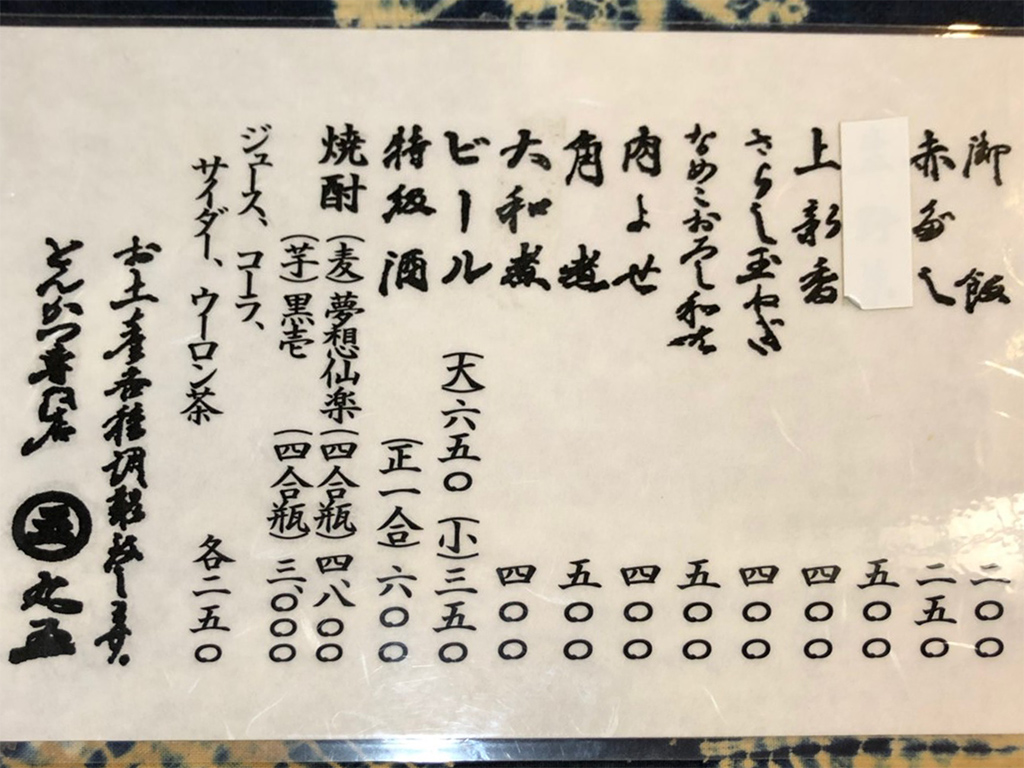 御飯 二〇〇
赤だし 二五〇
五〇〇
上新香 四〇〇
さらし玉ねぎ 四〇〇
なめこおろし和え 五〇〇
肉よせ 四〇〇
角煮 五〇〇
大和煮 四〇〇
ビール (大)六五〇 (小)三五〇
特級酒 (正一合)六〇〇
焼酎 (麦)夢想仙楽(四合瓶)四八〇〇
(芋)黒壱 (四合瓶)三、〇〇〇
ジュース、コーラ、
サイダー、ウーロン茶 各二五〇
お土産各種調製致します。
とんかつ専門店 五 丸五